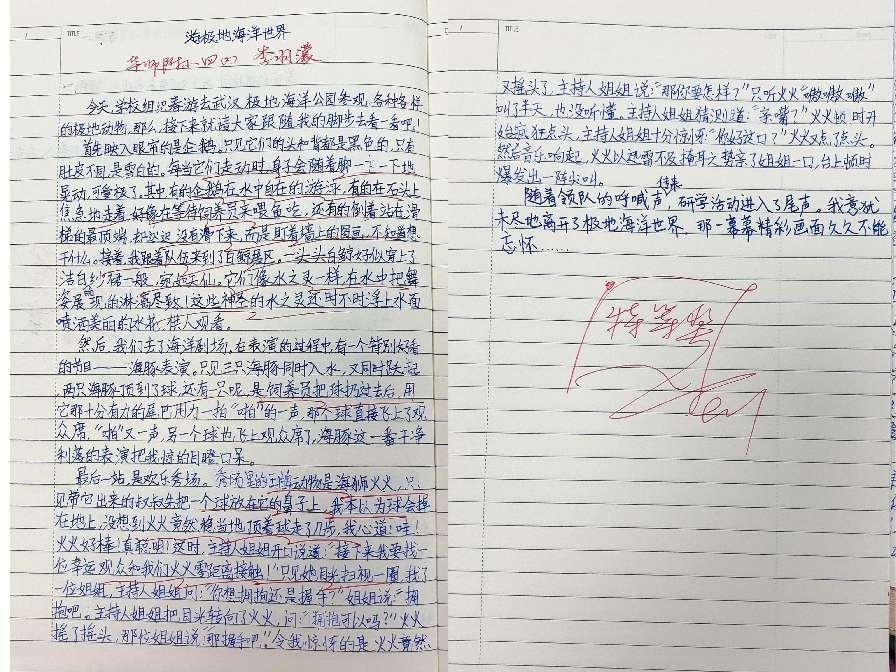 TITLE
游极地海洋世界
华师附小 四(7) 李羽濛
今天,学校组织春游去武汉极地海洋公园参观,各种各样
的极地动物,那么,接下来就请大家跟随我的脚步去看一看吧!
首先映入眼帘的是企鹅。只见它们的头和背都是黑色的,只有
肚皮不同,是雪白的。每当它们走动时,身子会随着脚一下一下地
晃动,可爱极了。其中有的企鹅在水中自在的游泳,有的在石头上
焦急地走着,好像在等待饲养员来喂鱼吃,还有的倒着站在滑
梯的最顶端,却迟迟没有滑下来,而是盯着墙上的图画,不知道想
干什么。接着,我跟着队伍来到了白鲸展区。一头头白鲸好似穿上了
洁白纱裙一般,宛如天仙。它们像水之灵一样,在水中把舞
姿展现的淋漓尽致!这些神圣的水之灵还时不时浮上水面
喷洒美丽的水花,禁人观看。
然后,我们去了海洋剧场。在表演的过程中,有一个特别好看
的节目——海豚表演。只见三只海豚同时入水,又同时跃起,
两只海豚顶到了球,还有一只呢,是饲养员把球扔过去后,用
它那十分有力的尾巴用力一拍“啪”的一声,那个球直接飞上了观
众席,“啪”又一声,另一个球也飞上观众席了,海豚这一番干净
利落的表演把我惊的目瞪口呆。
最后一站,是欢乐秀场。秀场里的王牌动物是海狮火火,只
见带它出来的叔叔先把一个球放在它的鼻子上,我本以为球会掉
在地上,没想到火火竟然稳当地顶着球走了几步,我心道:“哇!
火火好棒!真聪明!”这时,主持人姐姐开口说道:“接下来我要找一
位幸运观众和我们火火零距离接触!”只见她目光扫视一圈,找了
一位姐姐,主持人姐姐问:“你想拥抱还是握手?”姐姐说:“拥
抱吧。”主持人姐姐把目光转向了火火,问:“拥抱可以吗?”火火
摇了摇头,那位姐姐说:“那握手吧。”令我惊讶的是,火火竟然
TITLE
又摇头了,主持人姐姐说:“那你要怎样?”只听火火“嗷嗷嗷”
叫了半天,也没听懂,主持人姐姐猜测道:“亲嘴?”火火顿时开
始疯狂点头,主持人姐姐十分惊讶:“你好这口?”火火又点了点头。
然后音乐响起,火火以迅雷不及掩耳之势亲了姐姐一口,台上顿时
爆发出一阵尖叫。
随着领队的呼喊声传来,研学活动进入了尾声。我意犹
未尽地离开了极地海洋世界,那一幕幕精彩画面久久不能
忘怀……
特等奖